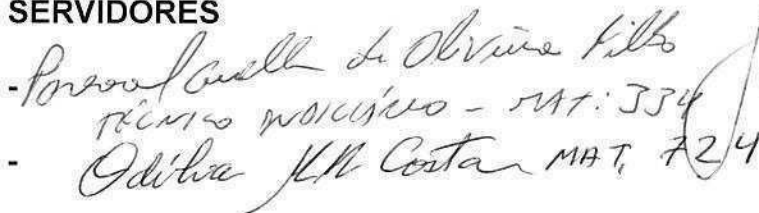 SERVIDORES
- de Oliveira Filho
TÉCNICO JUDICIÁRIO - MAT: 334
- Odilva Costa MAT. 724